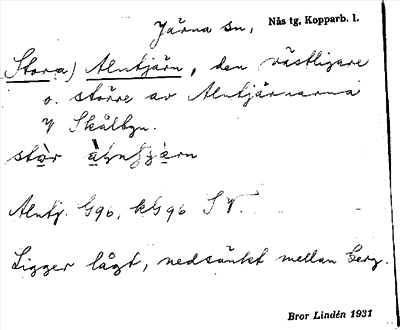 Järna sn, Nås tg, Kopparb. l.
Stora) Alntjärn, den västligare
o. större av Alntjärnarna
V Skålbyn.
Alntj. G96, kG96 SV.
Ligger lågt, nedsänkt mellan berg.
Bror Lindén 1931